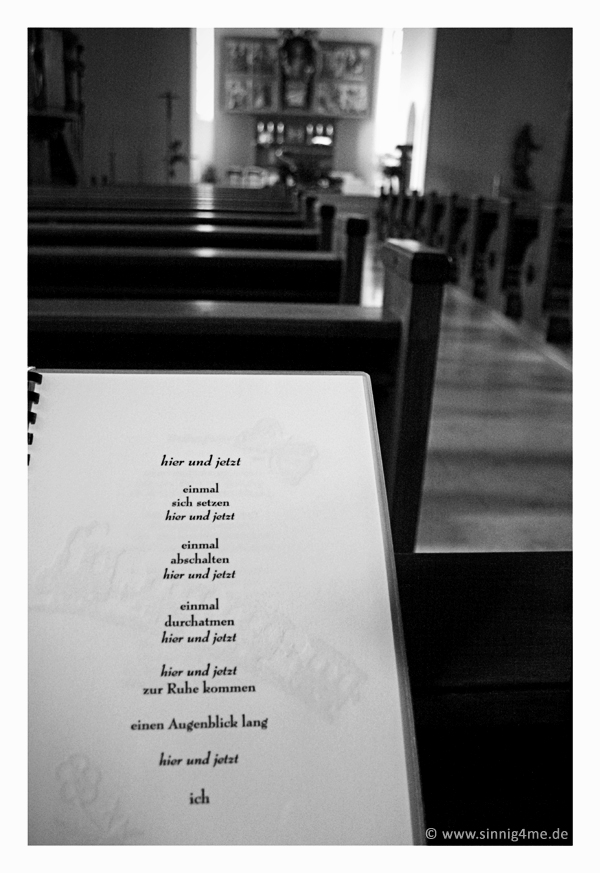 hier und jetzt
einmal
sich setzen
hier und jetzt
einmal
abschalten
hier und jetzt
einmal
durchatmen
hier und jetzt
hier und jetzt
zur Ruhe kommen
einen Augenblick lang
hier und jetzt
ich
© www.sinnig4me.de